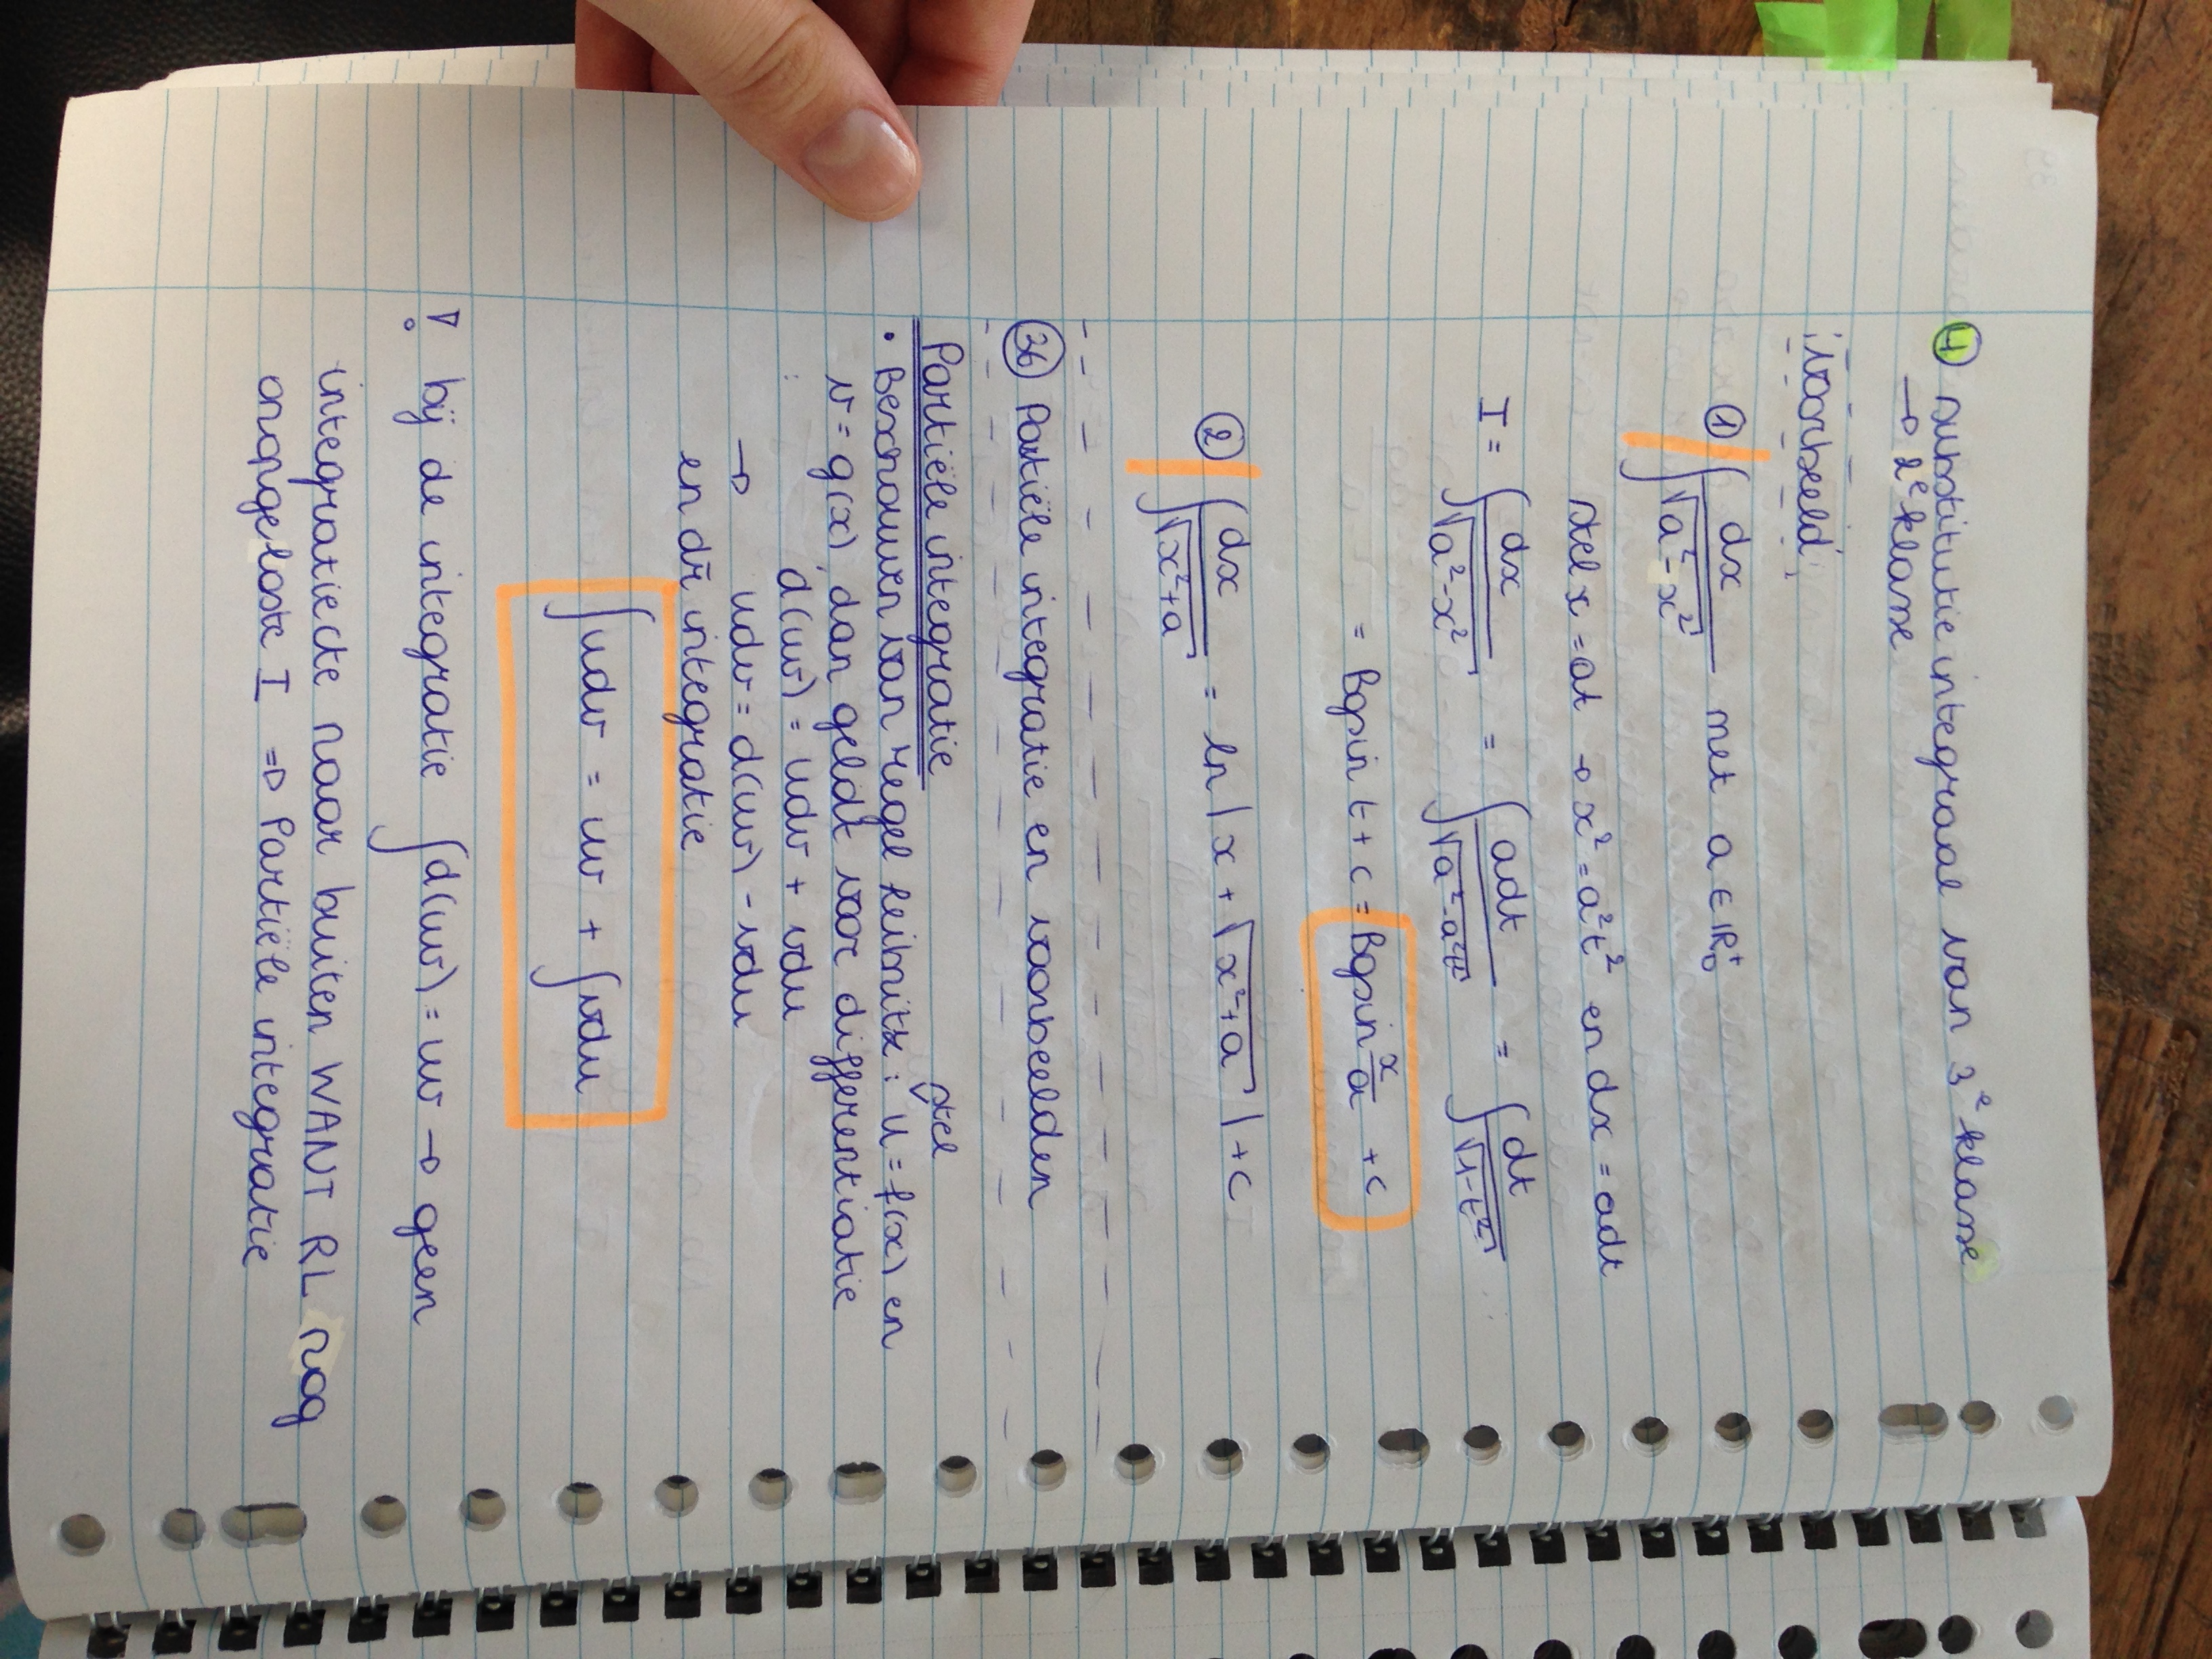 ④ substitutie integraal van 3e klasse
→ 2e klasse
voorbeeld
① ∫ dx / √(a² - x²) met a ∈ ℝ₀⁺
stel x = at → x² = a²t² en dx = adt
I = ∫ dx / √(a² - x²) = ∫ adt / √(a² - a²t²) = ∫ dt / √(1 - t²)
= Bgsin t + c = Bgsin x/a + c
② ∫ dx / √(x² + a) = ln | x + √(x² + a) | + c
㊱ Partiële integratie en voorbeelden
Partiële integratie
stel
• Beschouwen van regel Leibnitz : u = f(x) en
v = g(x), dan geldt voor differentiatie
: d(uv) = udv + vdu
→ udv = d(uv) - vdu
en dr̄ integratie
∫ udv = uv + ∫ vdu
! bij de integratie ∫ d(uv) = uv → geen
integratiecte naar buiten WANT RL nog
onopgeloste I ⇒ Partiële integratie